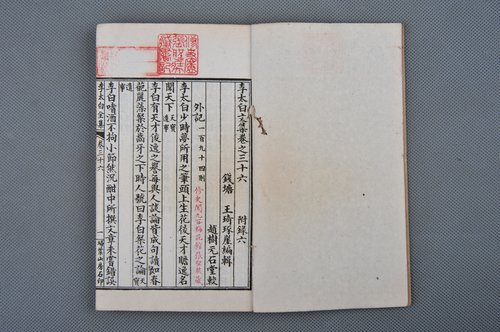 李太白文集卷之三十六
附錄六
錢塘 王琦琢崖編輯
趙樹元石堂較
外記 一百九十四則
李太白少時夢所用之筆頭上生花後天才贍逸名
聞天下 天寶遺事
李白有天才俊逸之譽每與人談論皆成句讀如春
葩麗藻粲於齒牙之下時人號曰李白粲花之論 天寶
遺事
李白嗜酒不拘小節然沉酣中所撰文章未嘗錯誤
李太白全集
卷三十六
一
掃葉山房石印